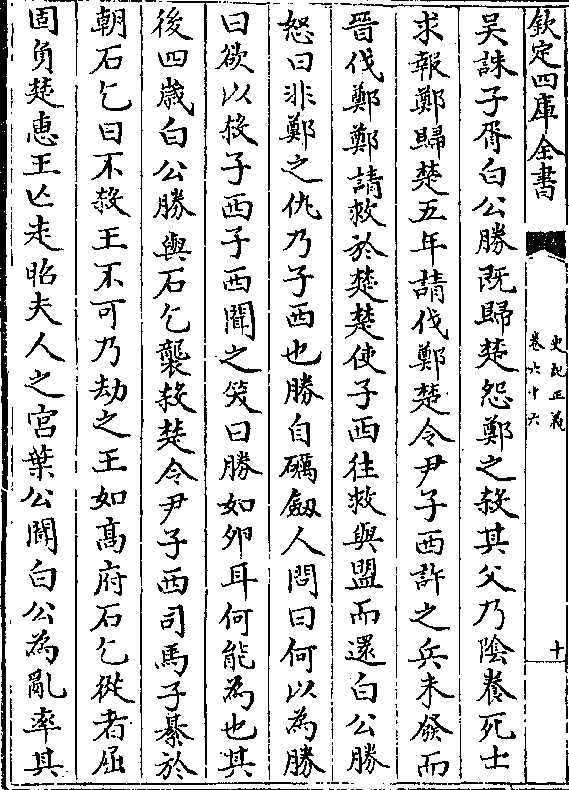 欽定四庫全書
史記正義
卷六十六
十
吳誅子胥白公勝既歸楚怨鄭之殺其父乃陰養死士
求報鄭歸楚五年請伐鄭楚令尹子西許之兵未發而
晉伐鄭鄭請救於楚楚使子西往救與盟而還白公勝
怒曰非鄭之仇乃子西也勝自礪劒人問曰何以為勝
曰欲以殺子西子西聞之笑曰勝如卵耳何能為也其
後四歲白公勝與石乞襲殺楚令尹子西司馬子綦於
朝石乞曰不殺王不可乃劫之王如高府石乞從者屈
固負楚惠王亡走昭夫人之宮葉公聞白公為亂率其